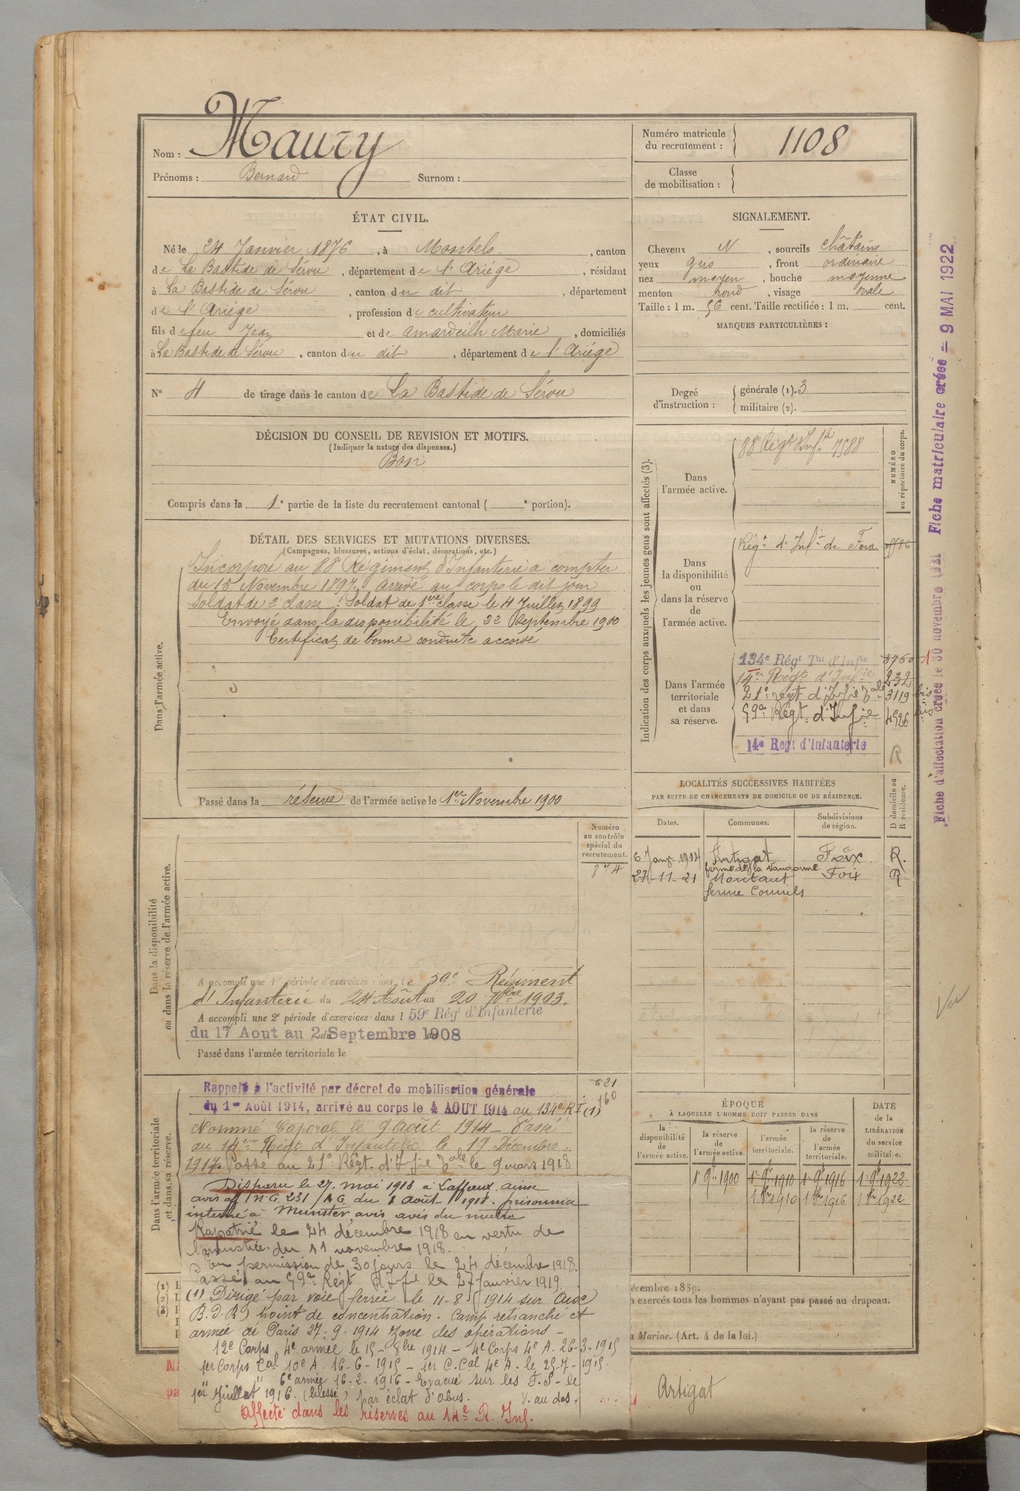 Nom : Maury
Prénoms : Bernard Surnom :
Numéro matricule du recrutement : 1108
Classe de mobilisation :
ÉTAT CIVIL.
Né le 24 Janvier 1876, à Montels, canton
de La Bastide de Sérou, département de l'Ariège, résidant
à La Bastide de Sérou, canton du dit, département
de l'Ariège, profession de cultivateur
fils de feu Jean et de Amardeilh Marie, domiciliés
à La Bastide de Sérou, canton du dit, département de l'Ariège
N° 4 de tirage dans le canton de La Bastide de Sérou
SIGNALEMENT.
Cheveux N, sourcils châtains
yeux gris, front ordinaire
nez moyen, bouche moyenne
menton rond, visage ovale
Taille : 1 m. 56 cent. Taille rectifiée : 1 m. cent.
MARQUES PARTICULIÈRES :
Degré d'instruction : générale (1). 3
militaire (2).
DÉCISION DU CONSEIL DE REVISION ET MOTIFS.
(Indiquer la nature des dispenses.)
Bon
Compris dans la 1e partie de la liste du recrutement cantonal ( e portion).
DÉTAIL DES SERVICES ET MUTATIONS DIVERSES.
(Campagnes, blessures, actions d'éclat, décorations, etc.)
Dans l'armée active.
Incorporé au 88e Régiment d'Infanterie à compter
du 15 Novembre 1897. Arrivé au corps le dit jour
soldat de 2e classe. Soldat de 1ère classe le 4 Juillet 1899
Envoyé dans la disponibilité le 22 Septembre 1900
Certificat de bonne conduite accordé
Passé dans la réserve de l'armée active le 1er Novembre 1900
Indication des corps auxquels les jeunes gens sont affectés (3).
NUMÉRO au répertoire du corps.
Dans l'armée active.
88 Régt d'Infie 7588
Dans la disponibilité ou dans la réserve de l'armée active.
Régt d'Infie de Foix
Dans l'armée territoriale et dans sa réserve.
134e Régt Tal d'Infie 8760
14e Régt d'Infie 232
21e régt d'Infie 3119 bis
59e Régt d'Infie 4526 bis
14e Regt d'Infanterie R
LOCALITÉS SUCCESSIVES HABITÉES
PAR SUITE DE CHANGEMENTS DE DOMICILE OU DE RÉSIDENCE.
D domicile ou R résidence.
Dates. Communes. Subdivisions de région.
6 Janv. 1914 Artigat Foix R.
27-11-21 Montaut Foix R
ferme
Dans la disponibilité ou dans la réserve de l'armée active.
Numéro au contrôle spécial du recrutement.
A accompli une 1e période d'exercices dans le 59e Régiment
d'Infanterie du 24 Août au 20 7bre 1903.
A accompli une 2e période d'exercices dans l 59e Rég d'Infanterie
du 17 Aout au 2 Septembre 1908
Passé dans l'armée territoriale le
Dans l'armée territoriale et dans sa réserve.
621
160
Rappelé à l'activité par décret de mobilisation générale
du 1er Août 1914, arrivé au corps le 4 AOUT 1914 au 134e RI (1)
Nommé Caporal le 9 août 1914 – Passé
au 14e Régt d'Infanterie le 17 Décembre
1917. Passé au 21e Régt. d'Infie le 9 mars 1918
Disparu le 27 mai 1918 à Laffaux, aisne
avis off INC 231/AG du 6 Août 1918. prisonnier
interné à Munster avis
Rapatrié le 24 décembre 1918 en vertu de
l'armistice du 11 novembre 1918.
En permission de 30 jours le 24 décembre 1918.
Passé au 59e Régt d'Infe le 27 Janvier 1919.
(1) Dirigé par voie ferrée le 11-8-1914 sur
point de concentration. Camp retranché et
armée de Paris 27-9-1914 zone des opérations –
12e Corps 4e armée le 15- 1914 – 4e Corps 4e A. 26-3-1915
1er Corps Cal 10e A. 16-6-1915 – 1er C. Cal 4e A. le 25-7-1915
6e armée 16-2-1916 – Evacué sur les
1er Juillet 1916 (blessé) par éclat d'obus. V. au dos.
Affecté dans les réserves au 14e R. Inf.
ÉPOQUE
À LAQUELLE L'HOMME DOIT PASSER DANS
la disponibilité de l'armée active. la réserve de l'armée active. l'armée territoriale. la réserve de l'armée territoriale.
DATE DE LA LIBÉRATION du service militaire.
1 9bre 1900 1 9bre 1910 1 9bre 1916 1 9bre 1922
1 1910 1 1916 1 1922
décembre 1889.
n exercés tous les hommes n'ayant pas passé au drapeau.
a Marine. (Art. 4 de la loi.)
Artigat
Fiche d'affectation créée le 30 novembre 1921 Fiche matriculaire créée = 9 MAI 1922